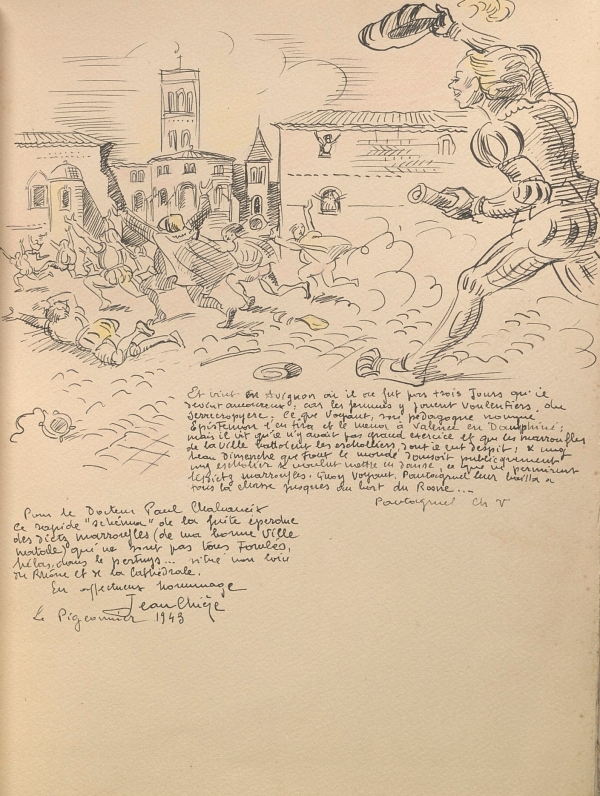 Et vint en Avignon où il ne fut pas trois Jours qu'il
devint amoureux; car les femmes y jouent voulentiers du
serrecropyere. Ce que Voyant, son pedagogue nommé
Epistemon l'en tira et le mena à Valence en Dauphiné;
mais il vit qu'il n'y avait pas grand exercice et que les marroufles
de la Ville battoient les escholliers, dont il eut despit; & ung
beau Dimanche que tout le monde dansoit publiquement
ung escholier se voulut mettre en danse, ce que ne permirent
lesdictz marroufles. Quoy Voyant, Pantagruel leur bailla à
tous la chasse jusques au bort du Rosne ...
Pantagruel Ch V
Pour le Docteur Paul
ce rapide "schéma" de la fuite éperdue
des dicts marroufles (de ma bonne Ville
natale) qui ne sont pas tous
hélas, dans le pertuys... situé non loin
du Rhône et de la Cathédrale.
En affectueux hommage
Jean Chièze
Le Pigeonnier 1943